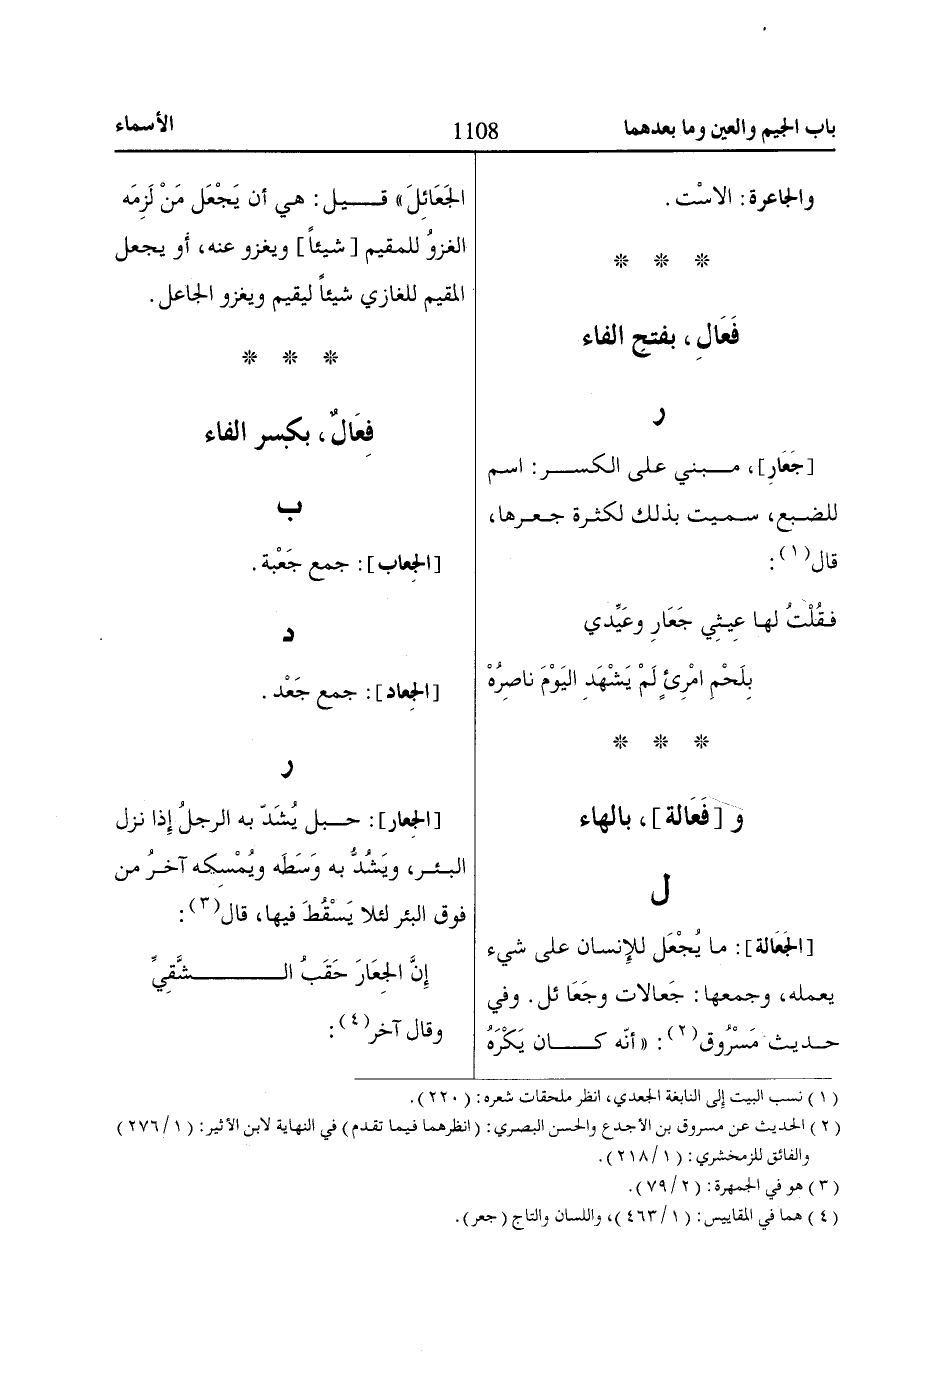 باب الجيم والعين وما بعدهما
1108
الأسماء
والجاعرة: الاسْت.
* * *
فَعَالِ، بفتح الفاء
ر
[جَعَارِ]، مبني على الكسر: اسم
للضبع، سميت بذلك لكثرة جعرها،
قال(١):
فقُلْتُ لها عيثِي جَعَارِ وعَيِّدي
بِلَحْمِ امْرِئٍ لَمْ يَشْهَدِ اليَوْمَ ناصِرُهْ
* * *
و [فَعَالة]، بالهاء
ل
[الجَعَالة]: ما يُجْعَل للإنسان على شيء
يعمله، وجمعها: جَعالات وجَعَائل. وفي
حديث مَسْرُوق(٢): «أنّه كان يَكْرَهُ
الجَعَائلَ» قيل: هي أن يَجْعَل مَنْ لَزِمَه
الغزوُ للمقيم [شيئاً] ويغزو عنه، أو يجعل
المقيم للغازي شيئاً ليقيم ويغزو الجاعل.
* * *
فِعَالٌ، بكسر الفاء
ب
[الجِعاب]: جمع جَعْبة.
د
[الجِعاد]: جمع جَعْد.
ر
[الجِعار]: حبل يُشَدّ به الرجلُ إذا نزل
البئر، ويَشُدُّ به وَسَطَه ويُمْسِكه آخرُ من
فوق البئر لئلا يَسْقُطَ فيها، قال(٣):
إنَّ الجِعَارَ حَقَبُ الشَّقِيِّ
وقال آخر(٤):
(١) نسب البيت إلى النابغة الجعدي، انظر ملحقات شعره: (٢٢٠).
(٢) الحديث عن مسروق بن الأجدع والحسن البصري: (انظرهما فيما تقدم) في النهاية لابن الأثير: (١/٢٧٦)
والفائق للزمخشري: (١/٢١٨).
(٣) هو في الجمهرة: (٢/٧٩).
(٤) هما في المقاييس: (١/٤٦٣)، واللسان والتاج (جعر).